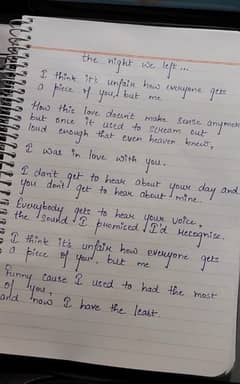 the night we left...
I think it's unfair how everyone gets
a piece of you, but me
How this love doesn't make sense anymore
but once it used to scream out
loud enough that even heaven knew,
I was in love with you.
I don't get to hear about your day and
you don't get to hear about mine.
Everybody gets to hear your voice,
the sound I promised I'd recognise.
I think it's unfair how everyone gets
a piece of you, but me
Funny cause I used to had the most
of you,
and now I have the least.